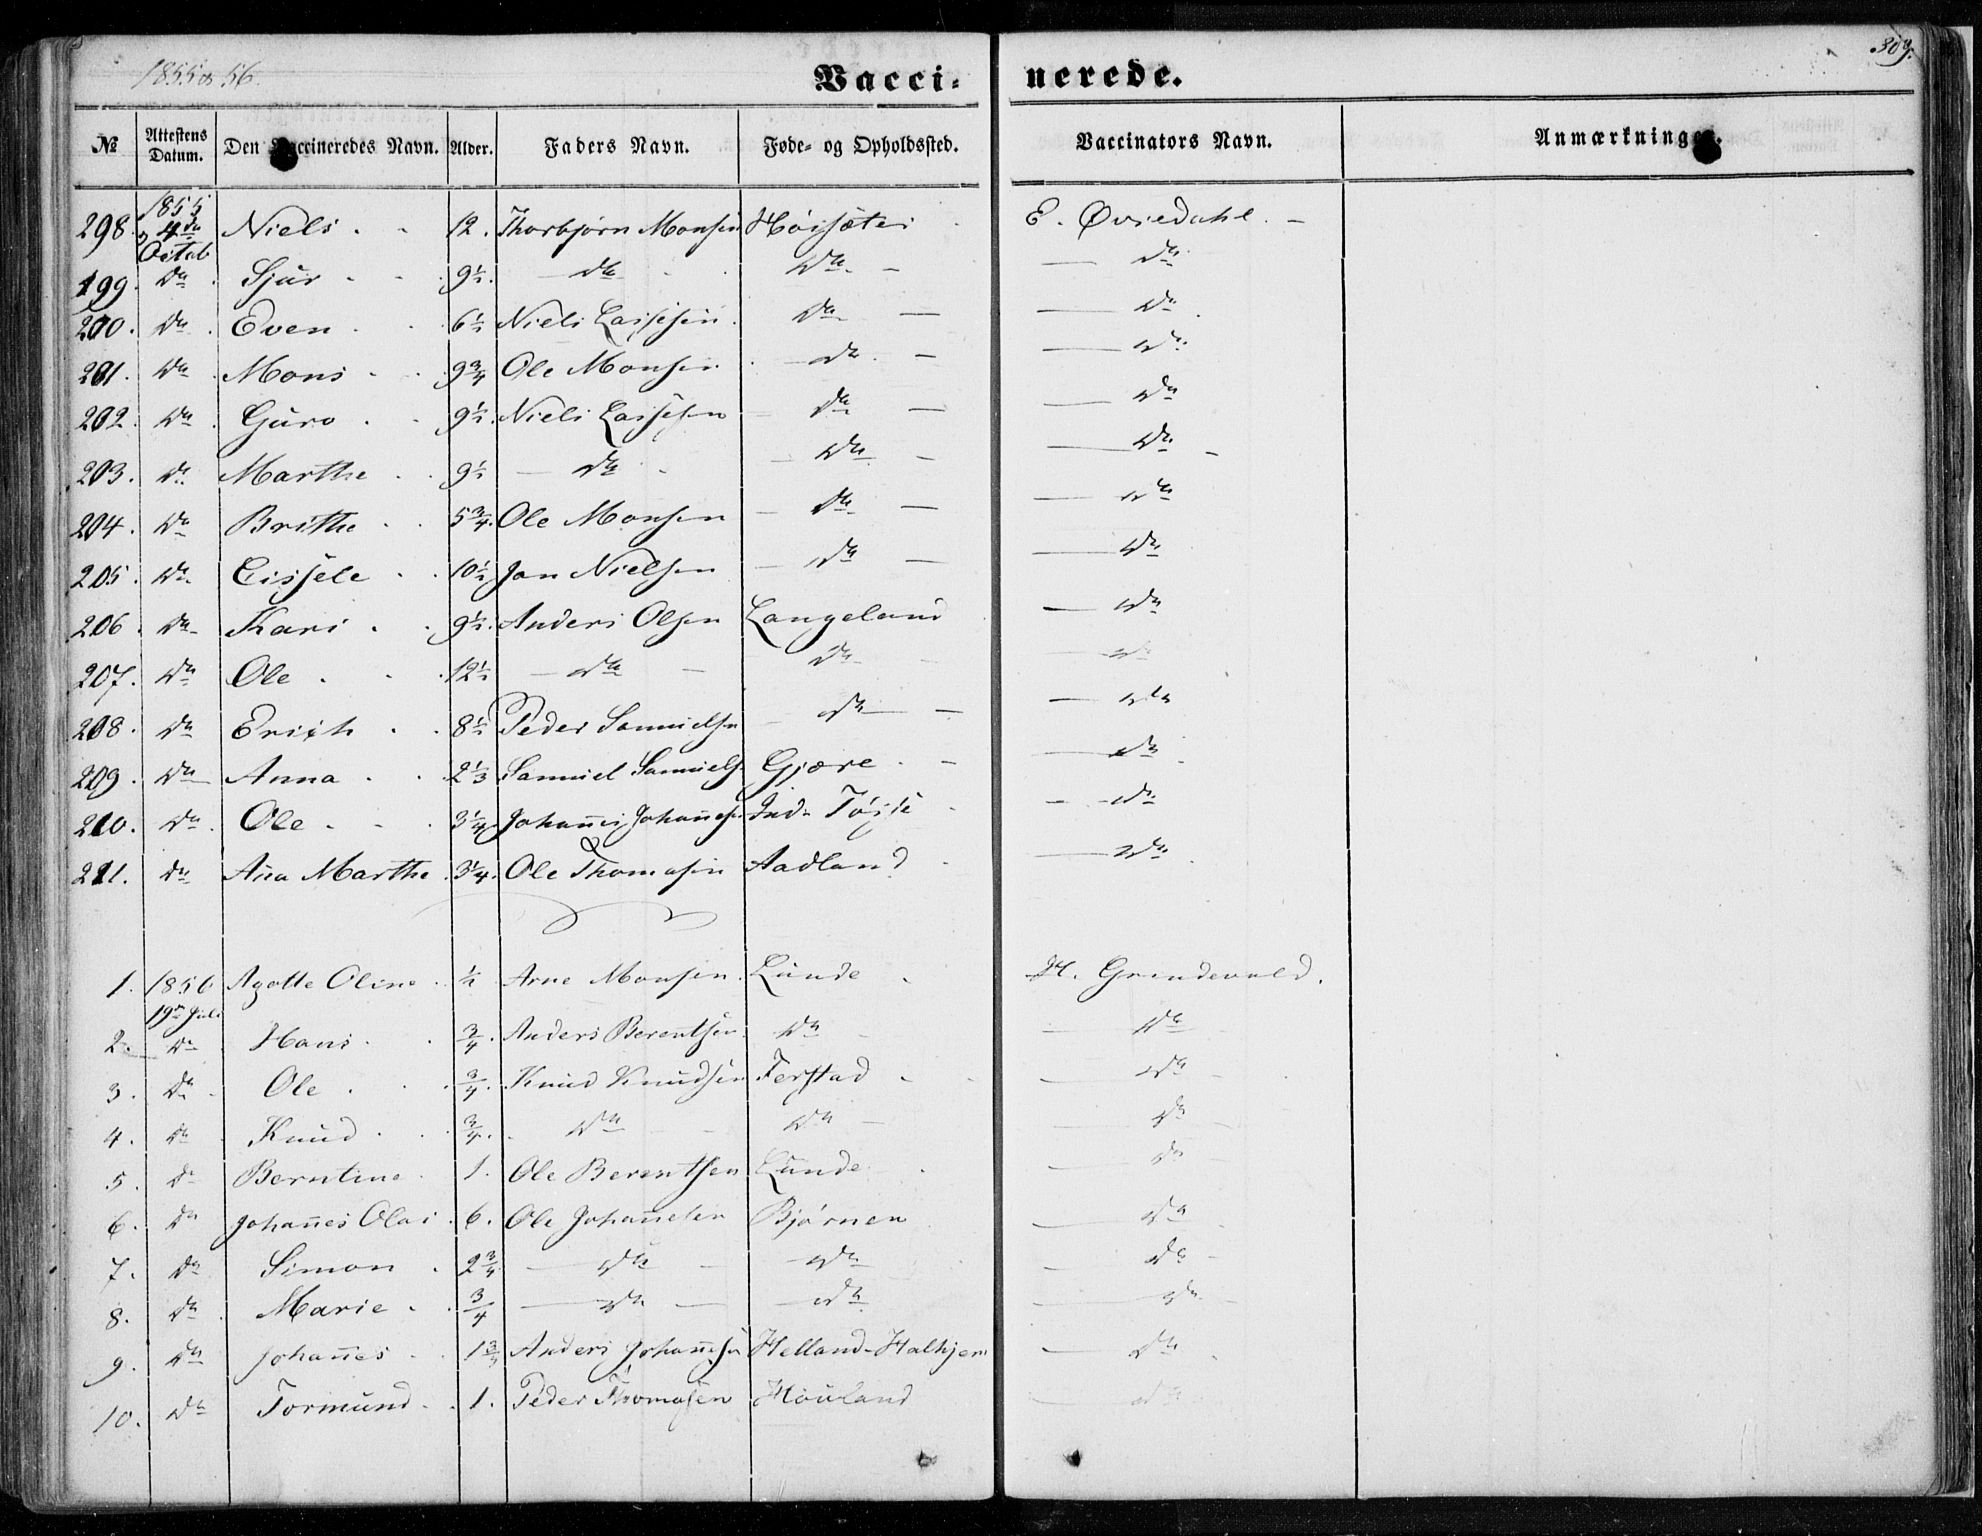 1855 & 56.
309.
Vacci- nerede.
№ | Attestens Datum. | Den Vaccineredes Navn. | Alder. | Faders Navn. | Føde- og Opholdssted. | Vaccinators Navn. | Anmærkninger.
298. | 1855 4de Octob | Niels | 12. | Thorbjørn Monsen | Høisæter | E. Øvredahl.
199. | Do | Sjur | 9½. | do | Do | Do
200. | Do | Even | 6½ | Niels Lassesen | Do | Do
201. | Do | Mons | 9¾ | Ole Monsen | Do | Do
202. | Do | Guro | 9½. | Niels Lassesen | Do | Do
203. | Do | Marthe | 9½ | Do | Do | Do
204. | Do | Brithe | 5¾. | Ole Monsen | Do | Do
205. | Do | Cissele | 10½ | Jon Nielsen | Do | Do
206. | Do | Kari | 9½. | Anders Olsen | Langeland | Do
207. | Do | Ole | 12½ | Do | Do | Do
208. | Do | Erich | 8½ | Peder Samuelsen | Do | Do
209. | Do | Anna | 2⅓ | Samuel Samuels. | Gjøre | Do
210. | Do | Ole | 3¼ | Johan̄es Johan̄esen | Ind. Tøsse | Do
211. | Do | An̄a Marthe | 3¼. | Ole Thomasen | Aadland | Do
1. | 1856 19de Juli | Agotte Oline | ½ | Arne Monsen | Lunde | H. Grindevald.
2. | Do | Hans | ¾. | Anders Berentsen | Do | Do
3. | Do | Ole | ¾. | Knud Knudsen | Ferstad | Do
4. | Do | Knud | ¾. | Do | Do | Do
5. | Do | Berntine | 1. | Ole Berentsen | Lunde | Do
6. | Do | Johan̄es Olai | 6. | Ole Johan̄esen | Bjørnen | Do
7. | Do | Simon | 2¾ | Do | Do | Do
8. | Do | Marie | ¾ | Do | Do | Do
9. | Do | Johan̄es | 1¾ | Anders Johan̄esen | Helland-Halhjem | Do
10. | Do | Tormund | 1. | Peder Thomasen | Houland | Do